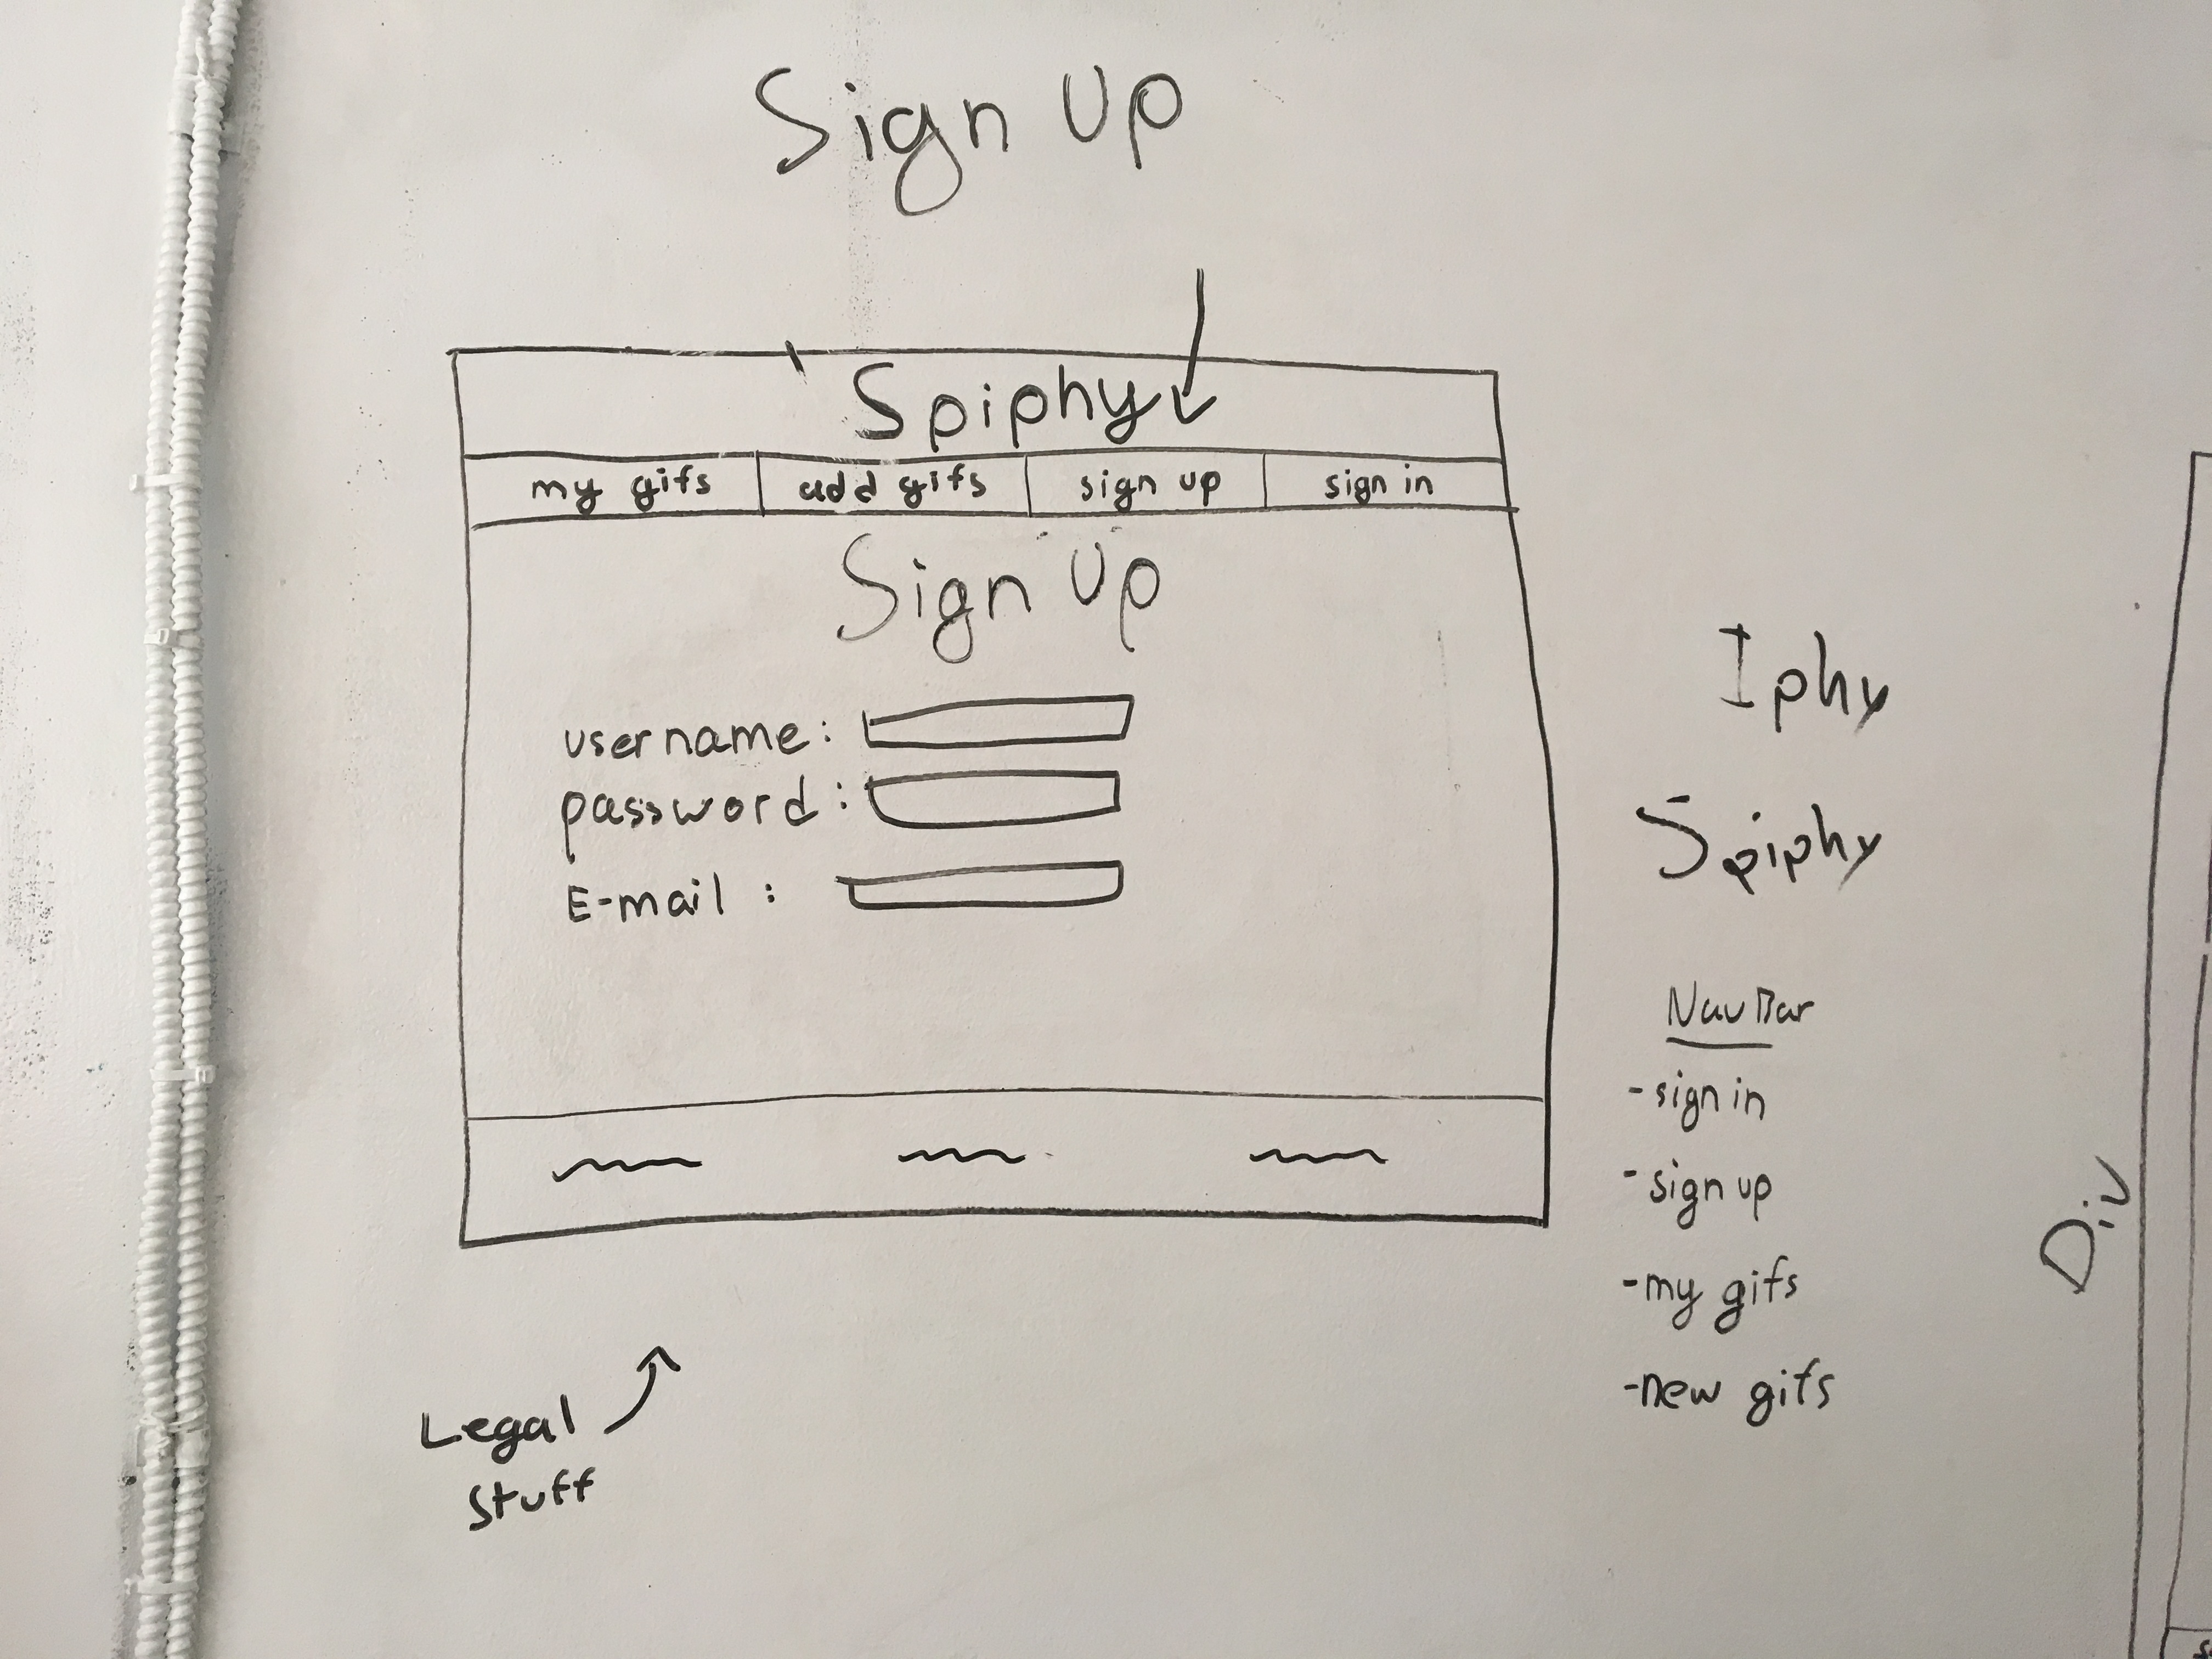 Sign Up
Spiphy
my gifs add gifs sign up sign in
Sign Up
username:
password:
E-mail :
Legal
stuff
Iphy
Spiphy
NavBar
-sign in
-sign up
-my gifs
-new gifs
Div